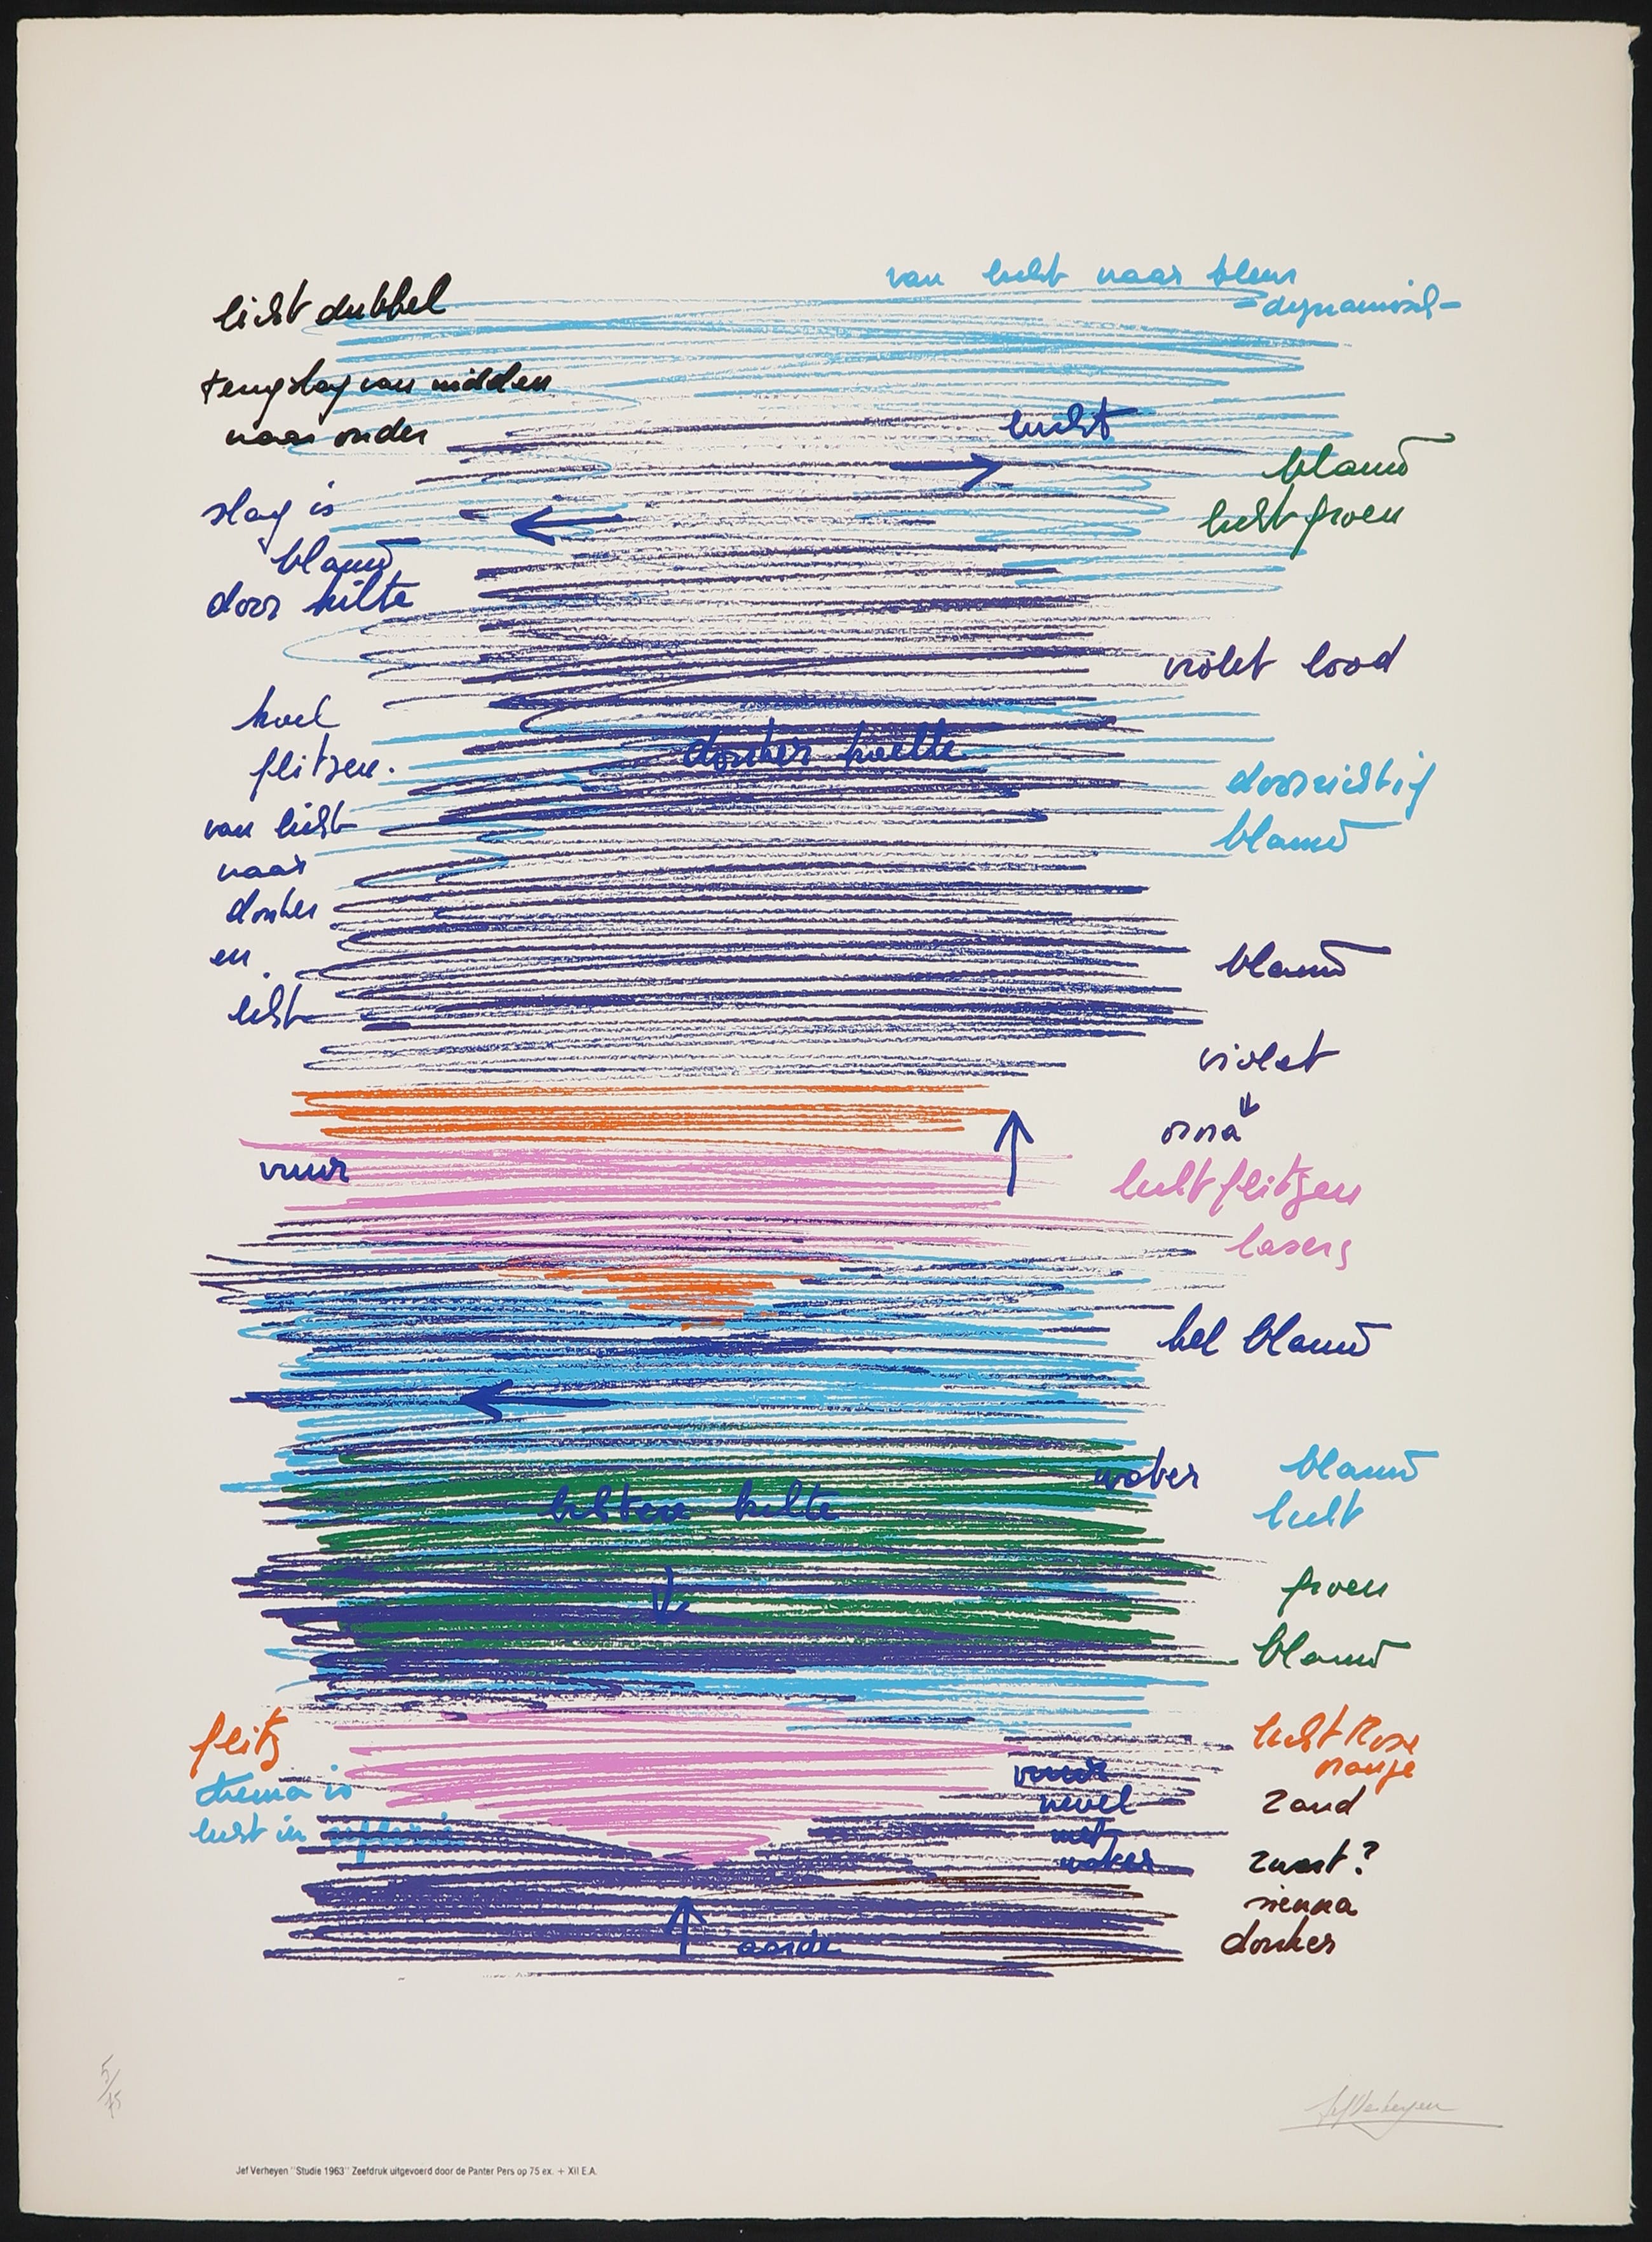 van licht naar kleur
= dynamisch -
licht dubbel
terugslag van midden
naar onder
lucht
blauw
licht groen
slag is
blauw
door kilte
violet lood
koel
flitsen.
donker koelte
doorzichtig
blauw
van licht
naar
donker
en
licht
blauw
violet
vuur
licht flitsen
lasers
hel blauw
water
blauw
licht
kilte
groen
blauw
flits
licht Rose
oranje
thema is
vuur
nevel
met
water
zand
licht in
zwart ?
sienna
donker
aarde
5/75
Jef Verheyen
Jef Verheyen "Studie 1963" Zeefdruk uitgevoerd door de Panter Pers op 75 ex. + XII E.A.